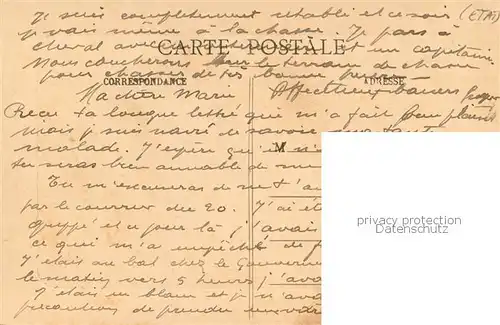 Je suis complètement rétabli et ce soir (ETAT
je vais même à la chasse. Je pars à
cheval avec et un capitaine
CARTE POSTALE
Nous coucherons sur le terrain de chasse
pour chasser de très bonne heure
CORRESPONDANCE
ADRESSE
Ma chère Marie Affectueux baisers
Reçu ta longue lettre qui m'a fait bien plaisir
mais je suis navré de savoir
malade. J'espère qu
M
tu seras bien aimable de me
Tu m'excuseras de ne t'a
par le courrier du 20. J'ai été
grippé et ce jour là j'avais
ce qui m'a empêché de
J'étais au bal chez le Gouverne
le matin vers 5 heures j'ava
J'étais en blanc et je n'ava
précaution de prendre
privacy protection
Datenschutz